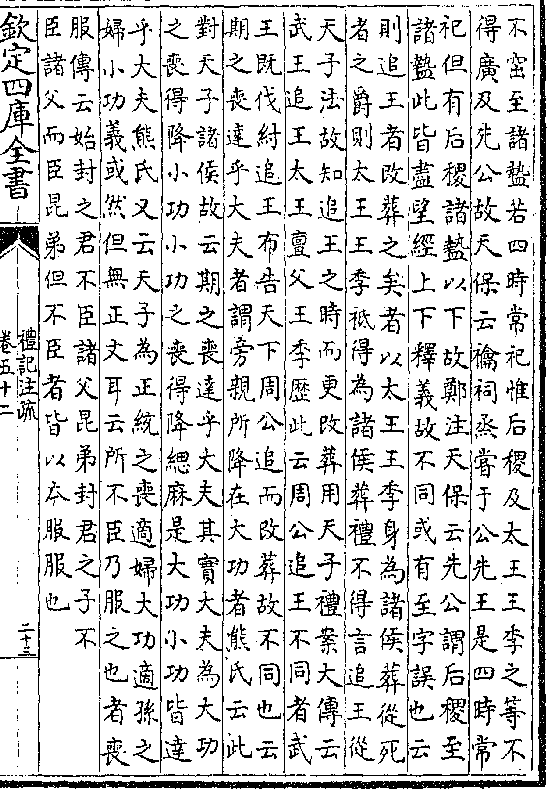 不窋至諸盩若四時常祀惟后稷及太王王季之等不
得廣及先公故天保云禴祠烝嘗于公先王是四時常
祀但有后稷諸盩以下故鄭注天保云先公謂后稷至
諸盩此皆盡望經上下釋義故不同或有至字誤也云
則追王者改葬之矣者以太王王季身為諸侯葬從死
者之爵則太王王季祗得為諸侯葬禮不得言追王從
天子法故知追王之時而更改葬用天子禮案大傳云
武王追王太王亶父王季歷此云周公追王不同者武
王既伐紂追王布告天下周公追而改葬故不同也云
期之喪達乎大夫者謂旁親所降在大功者熊氏云此
對天子諸侯故云期之喪達乎大夫其實大夫為大功
之喪得降小功小功之喪得降緦麻是大功小功皆達
乎大夫熊氏又云天子為正統之喪適婦大功適孫之
婦小功義或然但無正文耳云所不臣乃服之也者喪
服傳云始封之君不臣諸父昆弟封君之子不
臣諸父而臣昆弟但不臣者皆以本服服也
欽定四庫全書
禮記注疏
卷五十二
二十三